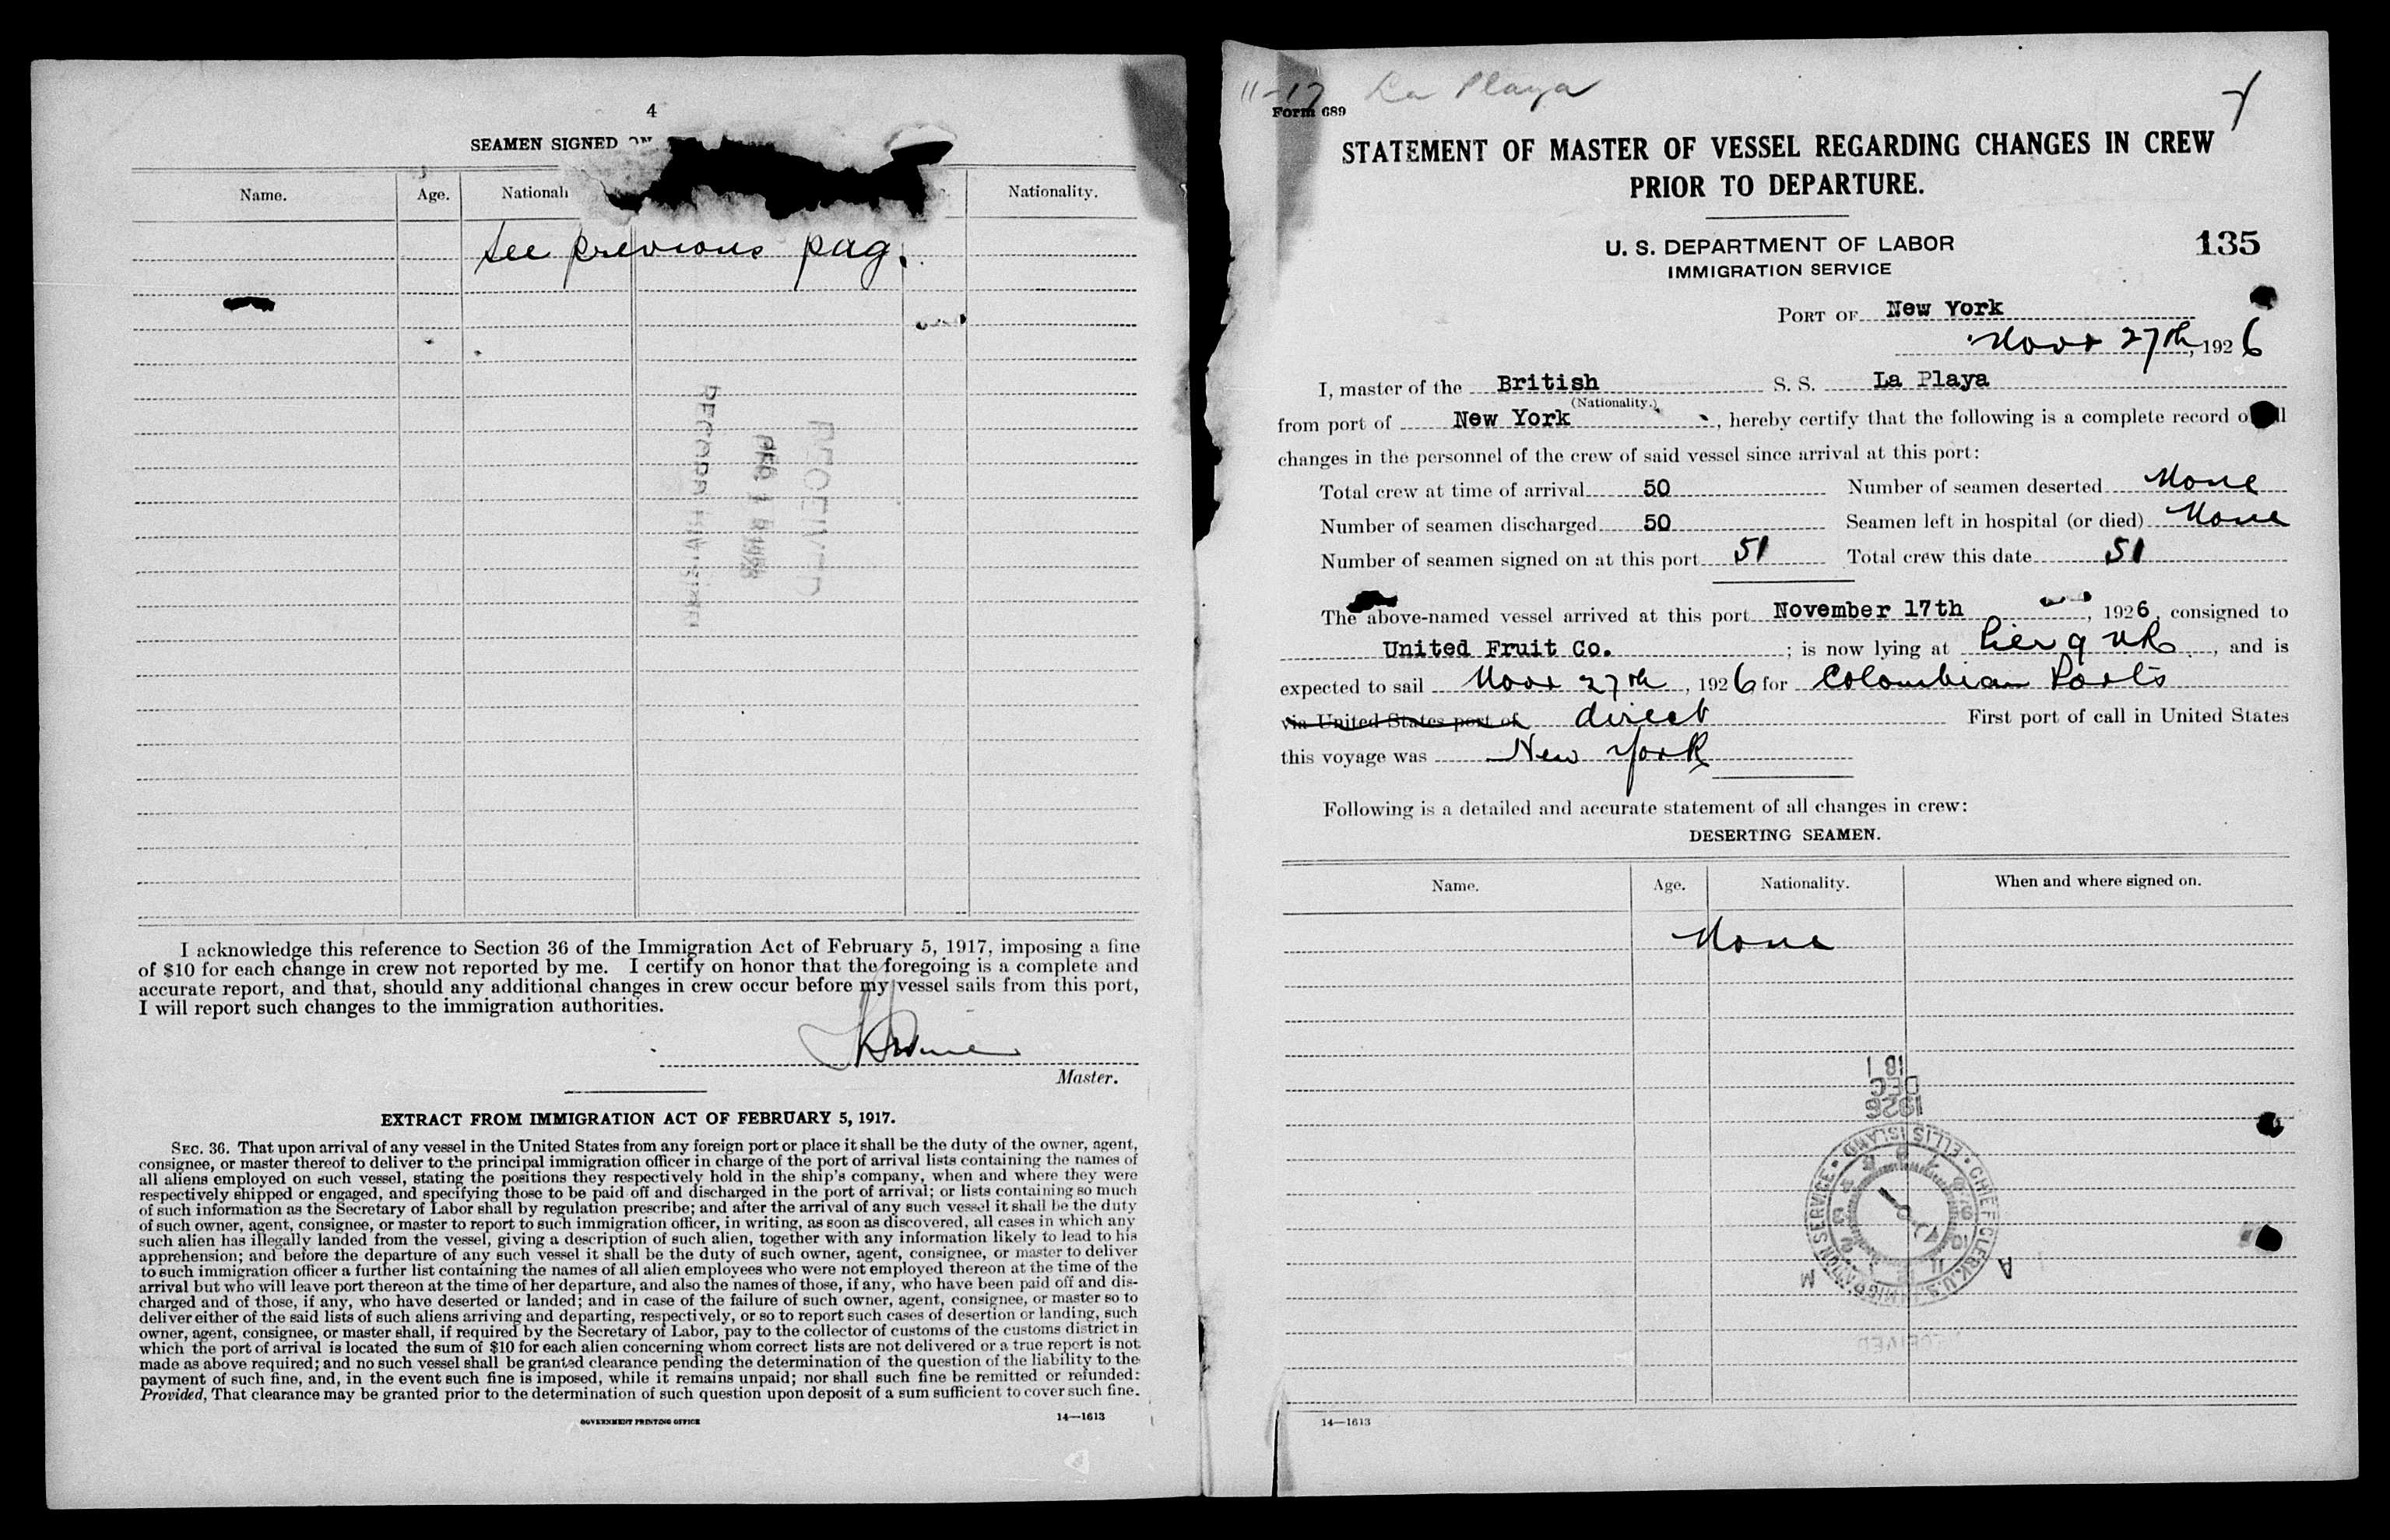 4
SEAMEN SIGNED ON
Name. Age. Nationali Nationality.
See previous pag.
RECEIVED
DEC 1 1926
RECORD DIVISION
I acknowledge this reference to Section 36 of the Immigration Act of February 5, 1917, imposing a fine
of $10 for each change in crew not reported by me. I certify on honor that the foregoing is a complete and
accurate report, and that, should any additional changes in crew occur before my vessel sails from this port,
I will report such changes to the immigration authorities.
Master.
EXTRACT FROM IMMIGRATION ACT OF FEBRUARY 5, 1917.
SEC. 36. That upon arrival of any vessel in the United States from any foreign port or place it shall be the duty of the owner, agent,
consignee, or master thereof to deliver to the principal immigration officer in charge of the port of arrival lists containing the names of
all aliens employed on such vessel, stating the positions they respectively hold in the ship's company, when and where they were
respectively shipped or engaged, and specifying those to be paid off and discharged in the port of arrival; or lists containing so much
of such information as the Secretary of Labor shall by regulation prescribe; and after the arrival of any such vessel it shall be the duty
of such owner, agent, consignee, or master to report to such immigration officer, in writing, as soon as discovered, all cases in which any
such alien has illegally landed from the vessel, giving a description of such alien, together with any information likely to lead to his
apprehension; and before the departure of any such vessel it shall be the duty of such owner, agent, consignee, or master to deliver
to such immigration officer a further list containing the names of all alien employees who were not employed thereon at the time of the
arrival but who will leave port thereon at the time of her departure, and also the names of those, if any, who have been paid off and dis-
charged and of those, if any, who have deserted or landed; and in case of the failure of such owner, agent, consignee, or master so to
deliver either of the said lists of such aliens arriving and departing, respectively, or so to report such cases of desertion or landing, such
owner, agent, consignee, or master shall, if required by the Secretary of Labor, pay to the collector of customs of the customs district in
which the port of arrival is located the sum of $10 for each alien concerning whom correct lists are not delivered or a true report is not
made as above required; and no such vessel shall be granted clearance pending the determination of the question of the liability to the
payment of such fine, and, in the event such fine is imposed, while it remains unpaid; nor shall such fine be remitted or refunded:
Provided, That clearance may be granted prior to the determination of such question upon deposit of a sum sufficient to cover such fine.
GOVERNMENT PRINTING OFFICE 14—1613
11-17 La Playa
Form 689
STATEMENT OF MASTER OF VESSEL REGARDING CHANGES IN CREW
PRIOR TO DEPARTURE.
U. S. DEPARTMENT OF LABOR
IMMIGRATION SERVICE
135
PORT OF New York
Novr 27th, 1926
I, master of the British S. S. La Playa
(Nationality.)
from port of New York, hereby certify that the following is a complete record of all
changes in the personnel of the crew of said vessel since arrival at this port:
Total crew at time of arrival 50 Number of seamen deserted None
Number of seamen discharged 50 Seamen left in hospital (or died) None
Number of seamen signed on at this port 51 Total crew this date 51
The above-named vessel arrived at this port November 17th, 1926, consigned to
United Fruit Co. ; is now lying at Pier 9 NR, and is
expected to sail Novr 27th, 1926 for Colombian Ports
via United States port of direct First port of call in United States
this voyage was New York
Following is a detailed and accurate statement of all changes in crew:
DESERTING SEAMEN.
Name. Age. Nationality. When and where signed on.
None
1926
DEC
CHIEF CLERK, U.S. IMMIGRATION SERVICE • ELLIS ISLAND •
A M
RECEIVED
14—1613